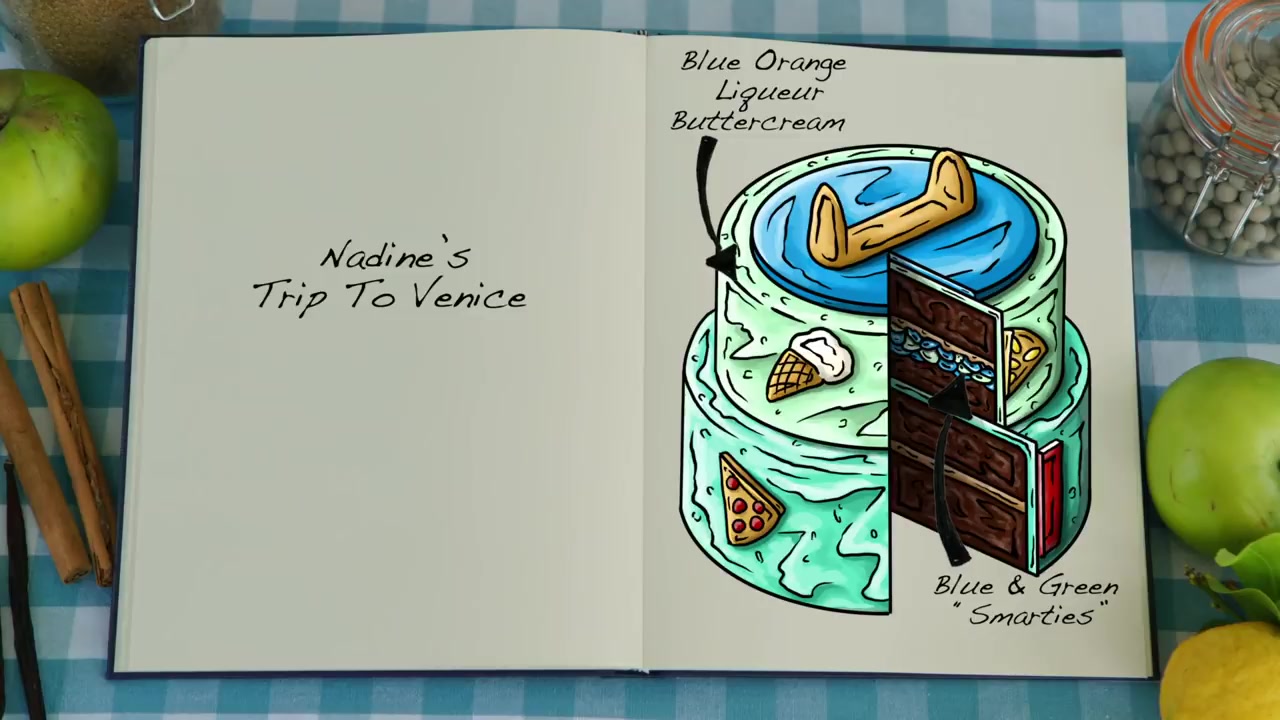 Nadine's
Trip To Venice
Blue Orange
Liqueur
Buttercream
Blue & Green
"Smarties"